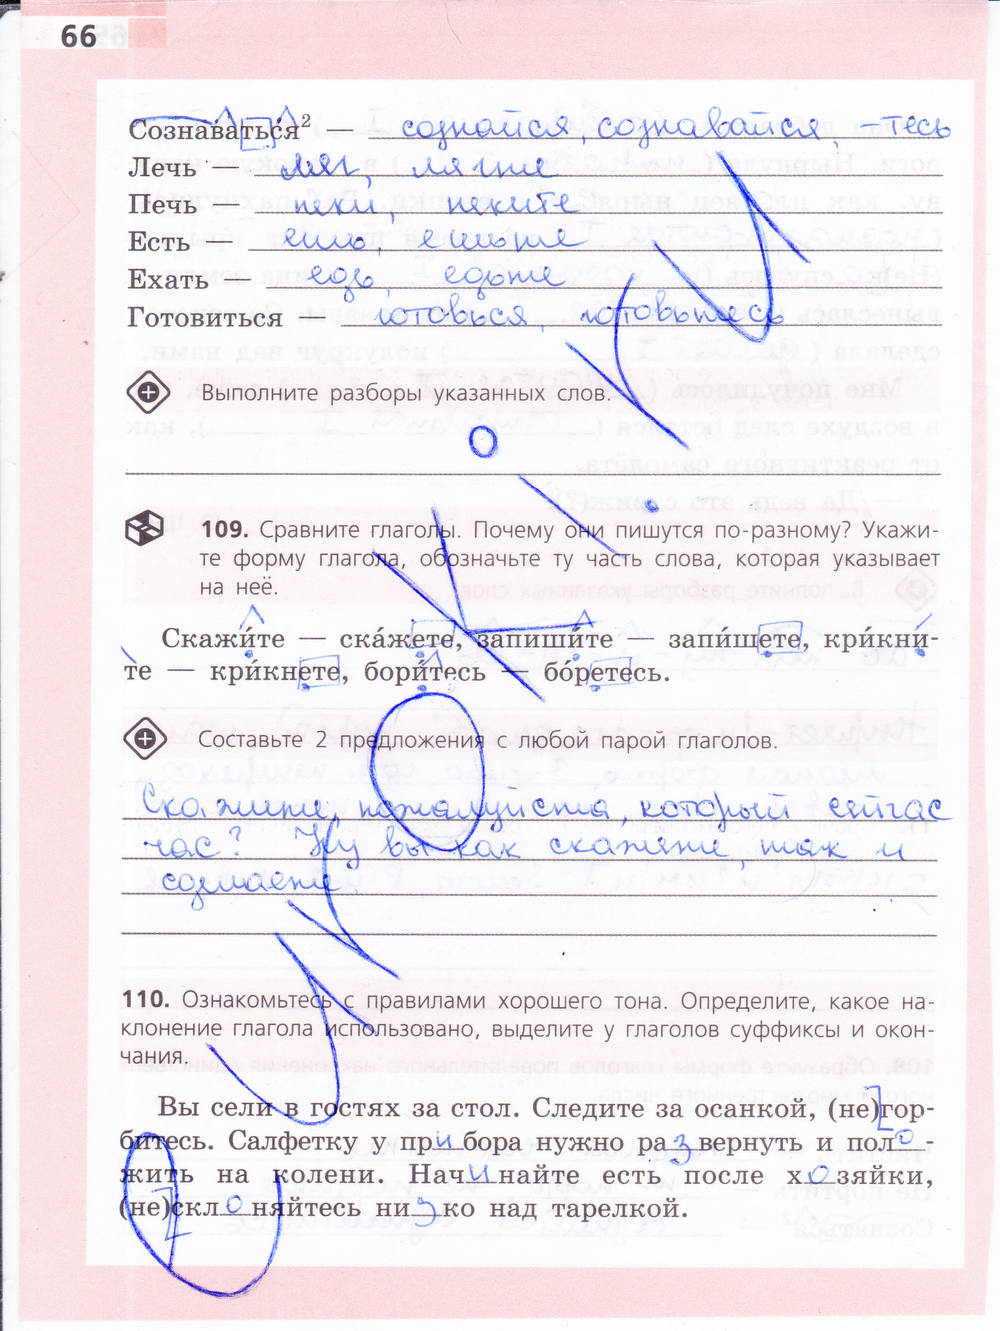 66
Сознаваться² — сознайся, сознавайся, -тесь
Лечь — ляг, лягте
Печь — пеки, пеките
Есть — ешь, ешьте
Ехать — едь, едьте
Готовиться готовься, готовьтесь
Выполните разборы указанных слов.
109. Сравните глаголы. Почему они пишутся по-разному? Укажи-
те форму глагола, обозначьте ту часть слова, которая указывает
на неё.
Скажи́те — ска́жете, запиши́те — запи́шете, крикни́-
те — кри́кнете, бори́тесь — бо́ретесь.
Составьте 2 предложения с любой парой глаголов.
Скажите, пожалуйста, который сейчас
час? Ну вы как скажете, так и
сделаем
110. Ознакомьтесь с правилами хорошего тона. Определите, какое на-
клонение глагола использовано, выделите у глаголов суффиксы и окон-
чания.
Вы сели в гостях за стол. Следите за осанкой, (не)гор-
битесь. Салфетку у прибора нужно развернуть и поло-
жить на колени. Начинайте есть после хозяйки,
(не)склоняйтесь низко над тарелкой.